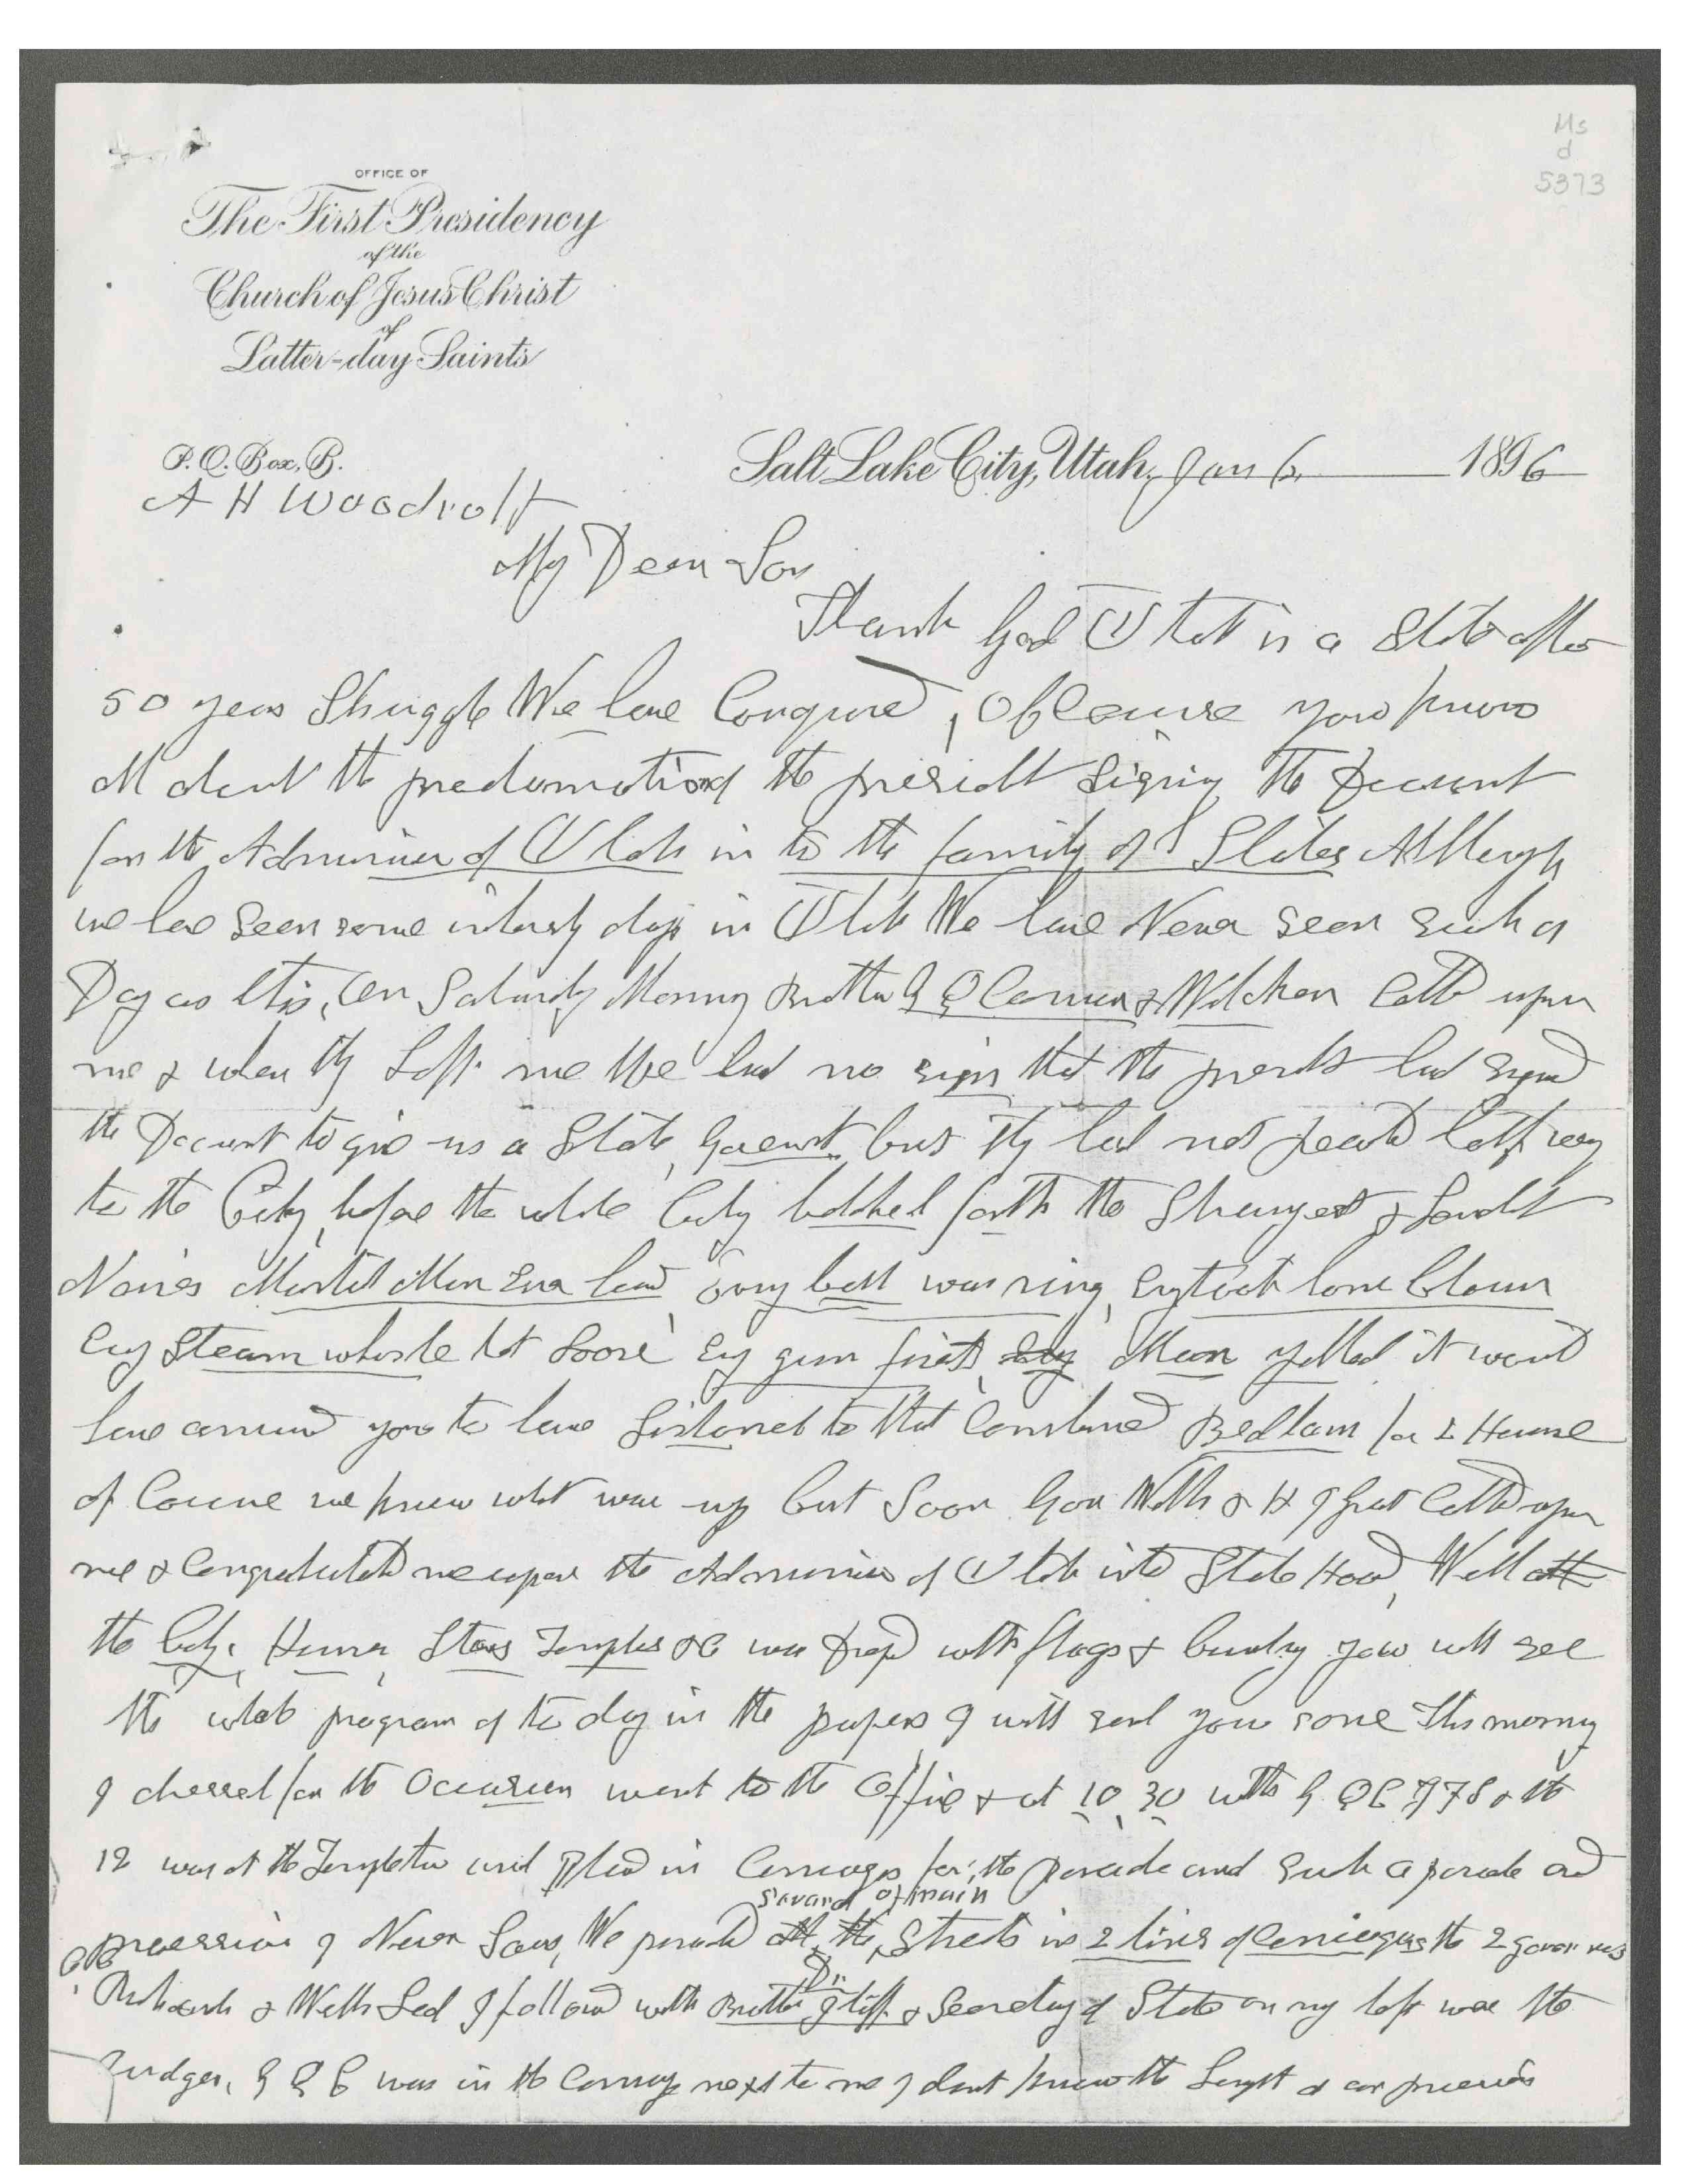 Ms
d
5373
OFFICE OF
The First Presidency
of the
Church of Jesus Christ
of
Latter-day Saints
P.O. Box, B.
Salt Lake City, Utah, Jan 6, 1896
A H Woodruff
My Dear Son
Thank God Utah is a State after
50 years Struggle We have Conquered, Of Course you know
all about the of the president signing the Document
for the Admission of Utah in to the family of States Although
we have seen some days in Utah We have Never seen such a
Day as this, On Saturday Morning Brother G Q Cannon & Wilcken Calld upon
me & when they Left me We had no sign that the had signed
the Document to give us a State, Goverment but they had not half way
to the City, before the whole City belched forth the Strangest & Loudest
Noises Mortal Man Ever heard, evry bell was ring, horn blown
Evry Steam whistle let Loose Evry gun fired, Evry Man yelled it would
have amused you to have Listoned to that Combined Bedlam for 2 Hours
of Course we knew what was up but Soon Gov Wells & H J Grant Calld upon
me & Congratulated me upon the Admission of Utah into State Hood, Well all
the City, Homes, Stores Temples &c was with flags & bunting you will see
the whole program of to day in the papers I will send you some This morning
I dressed for the Occasion went to the Office & at 10,30 with G Q C J F S & the
12 was at the Templeton and in Carriages for the parade and such a parade and
several of main
procession I Never Saw, We paraded all the Streets in 2 lines of Carriages the 2 governors
Dr
Richards & Wells Led I followd with Brother Iliff & Secretary of State on my left was the
Judges, G Q C was in the Carriage next to me I dont know the Length of our procession